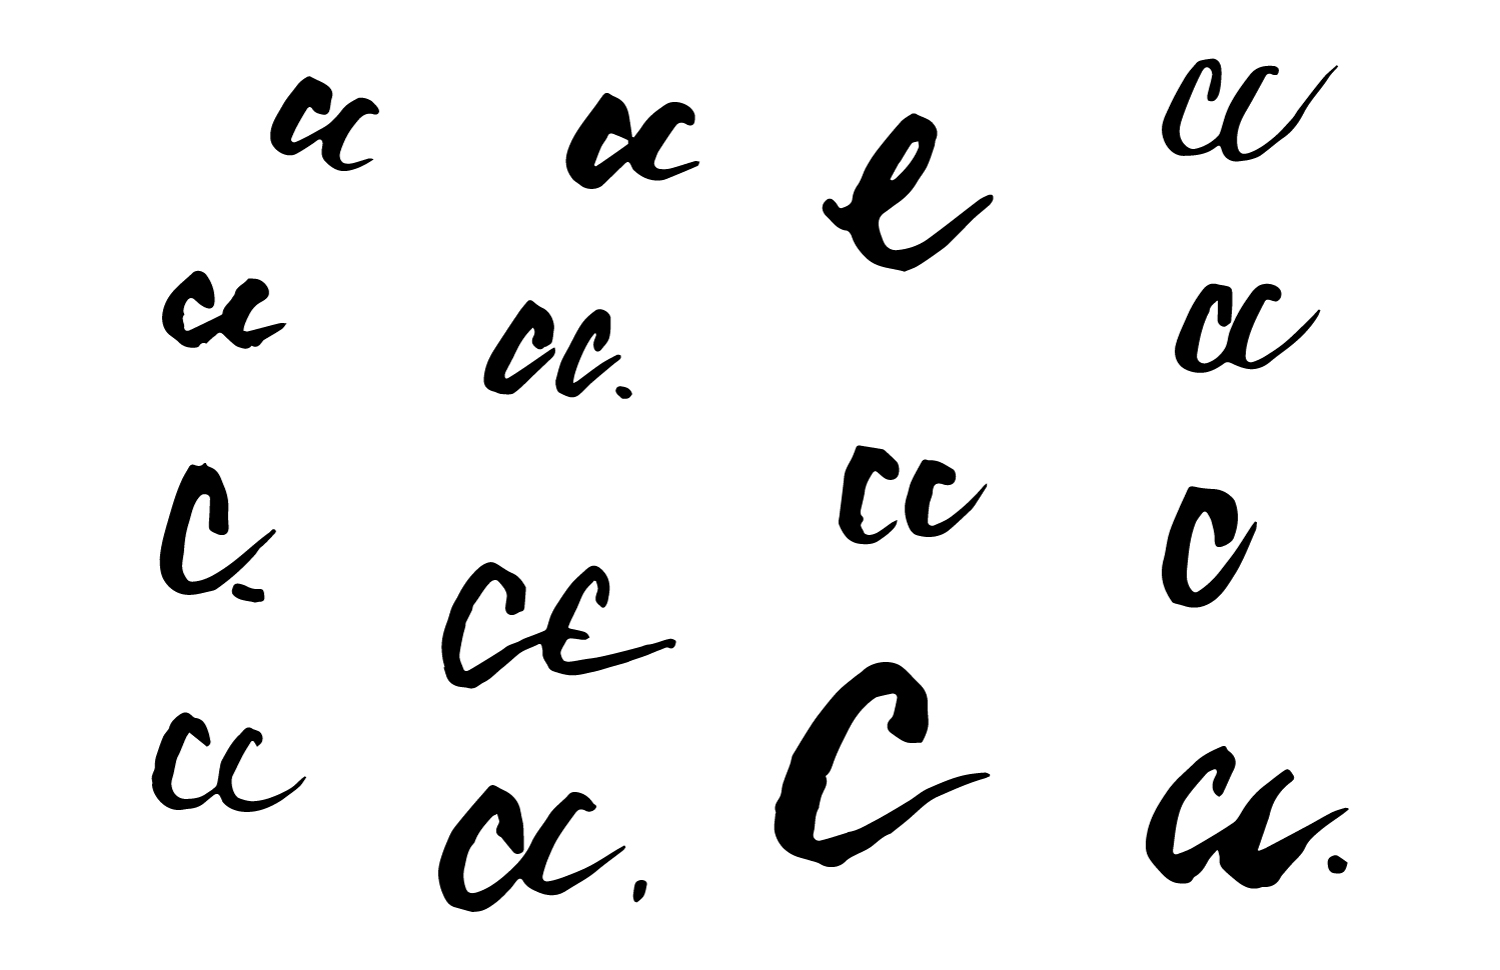 cc cc e cc
cc cc. cc
c. cc cc c
cc cc. c cc.